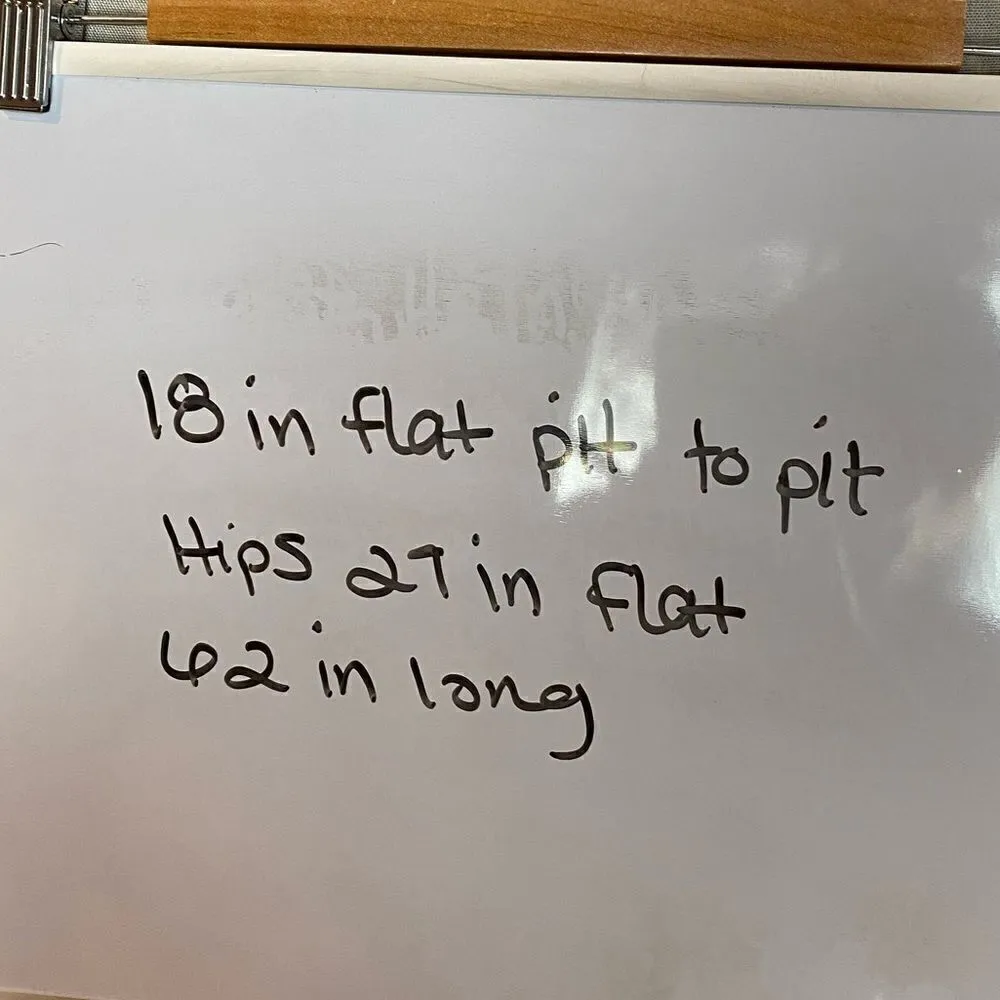 18 in flat pit to pit
Hips 27 in flat
62 in long